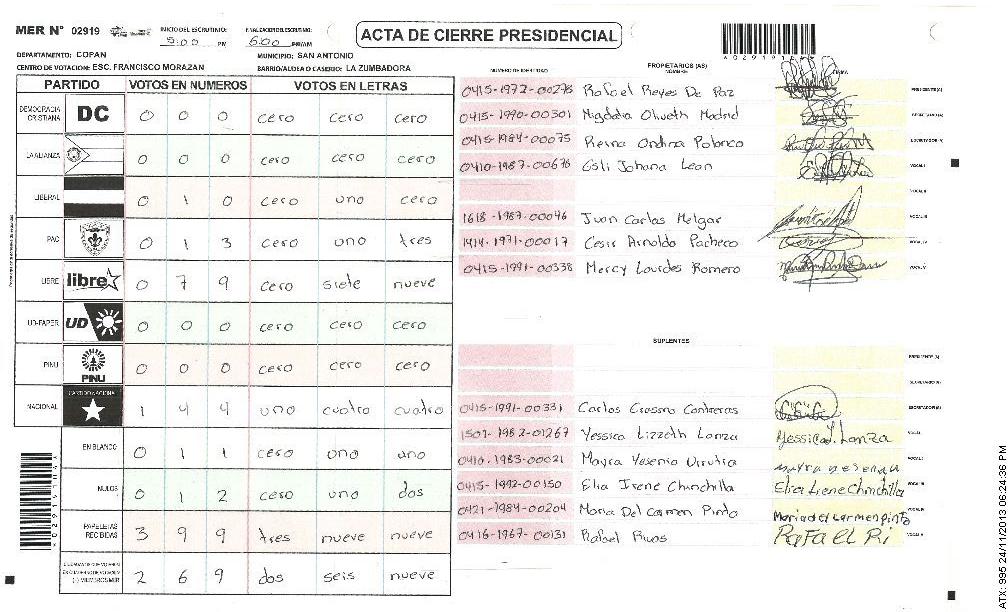 MER N° 02919 INICIO DEL ESCRUTINIO: 5:00 PM FINALIZACION ESCRUTINIO: 6:00 PM/AM
ACTA DE CIERRE PRESIDENCIAL
DEPARTAMENTO: COPAN MUNICIPIO: SAN ANTONIO
CENTRO DE VOTACION: ESC. FRANCISCO MORAZAN BARRIO/ALDEA O CASERIO: LA ZUMBADORA
PARTIDO VOTOS EN NUMEROS VOTOS EN LETRAS
DEMOCRACIA CRISTIANA DC 0 0 0 cero cero cero
LA ALIANZA 0 0 0 cero cero cero
LIBERAL 0 1 0 cero uno cero
PAC 0 1 3 cero uno tres
LIBRE libre 0 7 9 cero siete nueve
UD-FAPER UD 0 0 0 cero cero cero
PINU PINU 0 0 0 cero cero cero
NACIONAL PARTIDO NACIONAL 1 4 4 uno cuatro cuatro
EN BLANCO 0 1 1 cero uno uno
NULOS 0 1 2 cero uno dos
PAPELETAS RECIBIDAS 3 9 9 tres nueve nueve
2 6 9 dos seis nueve
NUMERO DE IDENTIDAD PROPIETARIOS (AS) NOMBRE FIRMA
0415-1972-00276 Rafael Reyes De Paz PRESIDENTE(A)
0415-1990-00301 Migdalia Oliveth Madrid SECRETARIO(A)
0415-1984-00075 Reyna Ondina Polanco
0410-1987-00676 Esli Johana Leon VOCAL I
VOCAL II
1618-1987-00046 Juan Carlos Melgar VOCAL III
1414-1971-00017 Cesar Arnoldo Pacheco VOCAL IV
0415-1991-00338 Mercy Lourdes Romero VOCAL V
SUPLENTES
PRESIDENTE (A)
SECRETARIO(A)
0415-1991-00331 Carlos Contreras
1501-1982-01267 Yessica Lizzeth Lanza Yessica L. Lanza VOCAL I
0416-1983-00021 Mayra Yesenia Urrutia Mayra Yesenia
0415-1992-00150 Elia Irene Chinchilla Elia Irene Chinchilla
0421-1984-00204 Maria Del Carmen Pinto Maria del Carmen Pinto
0416-1967-00131 Rafael Rivas Rafael Ri
ATX: 995 24/11/2013 06:24:36 PM